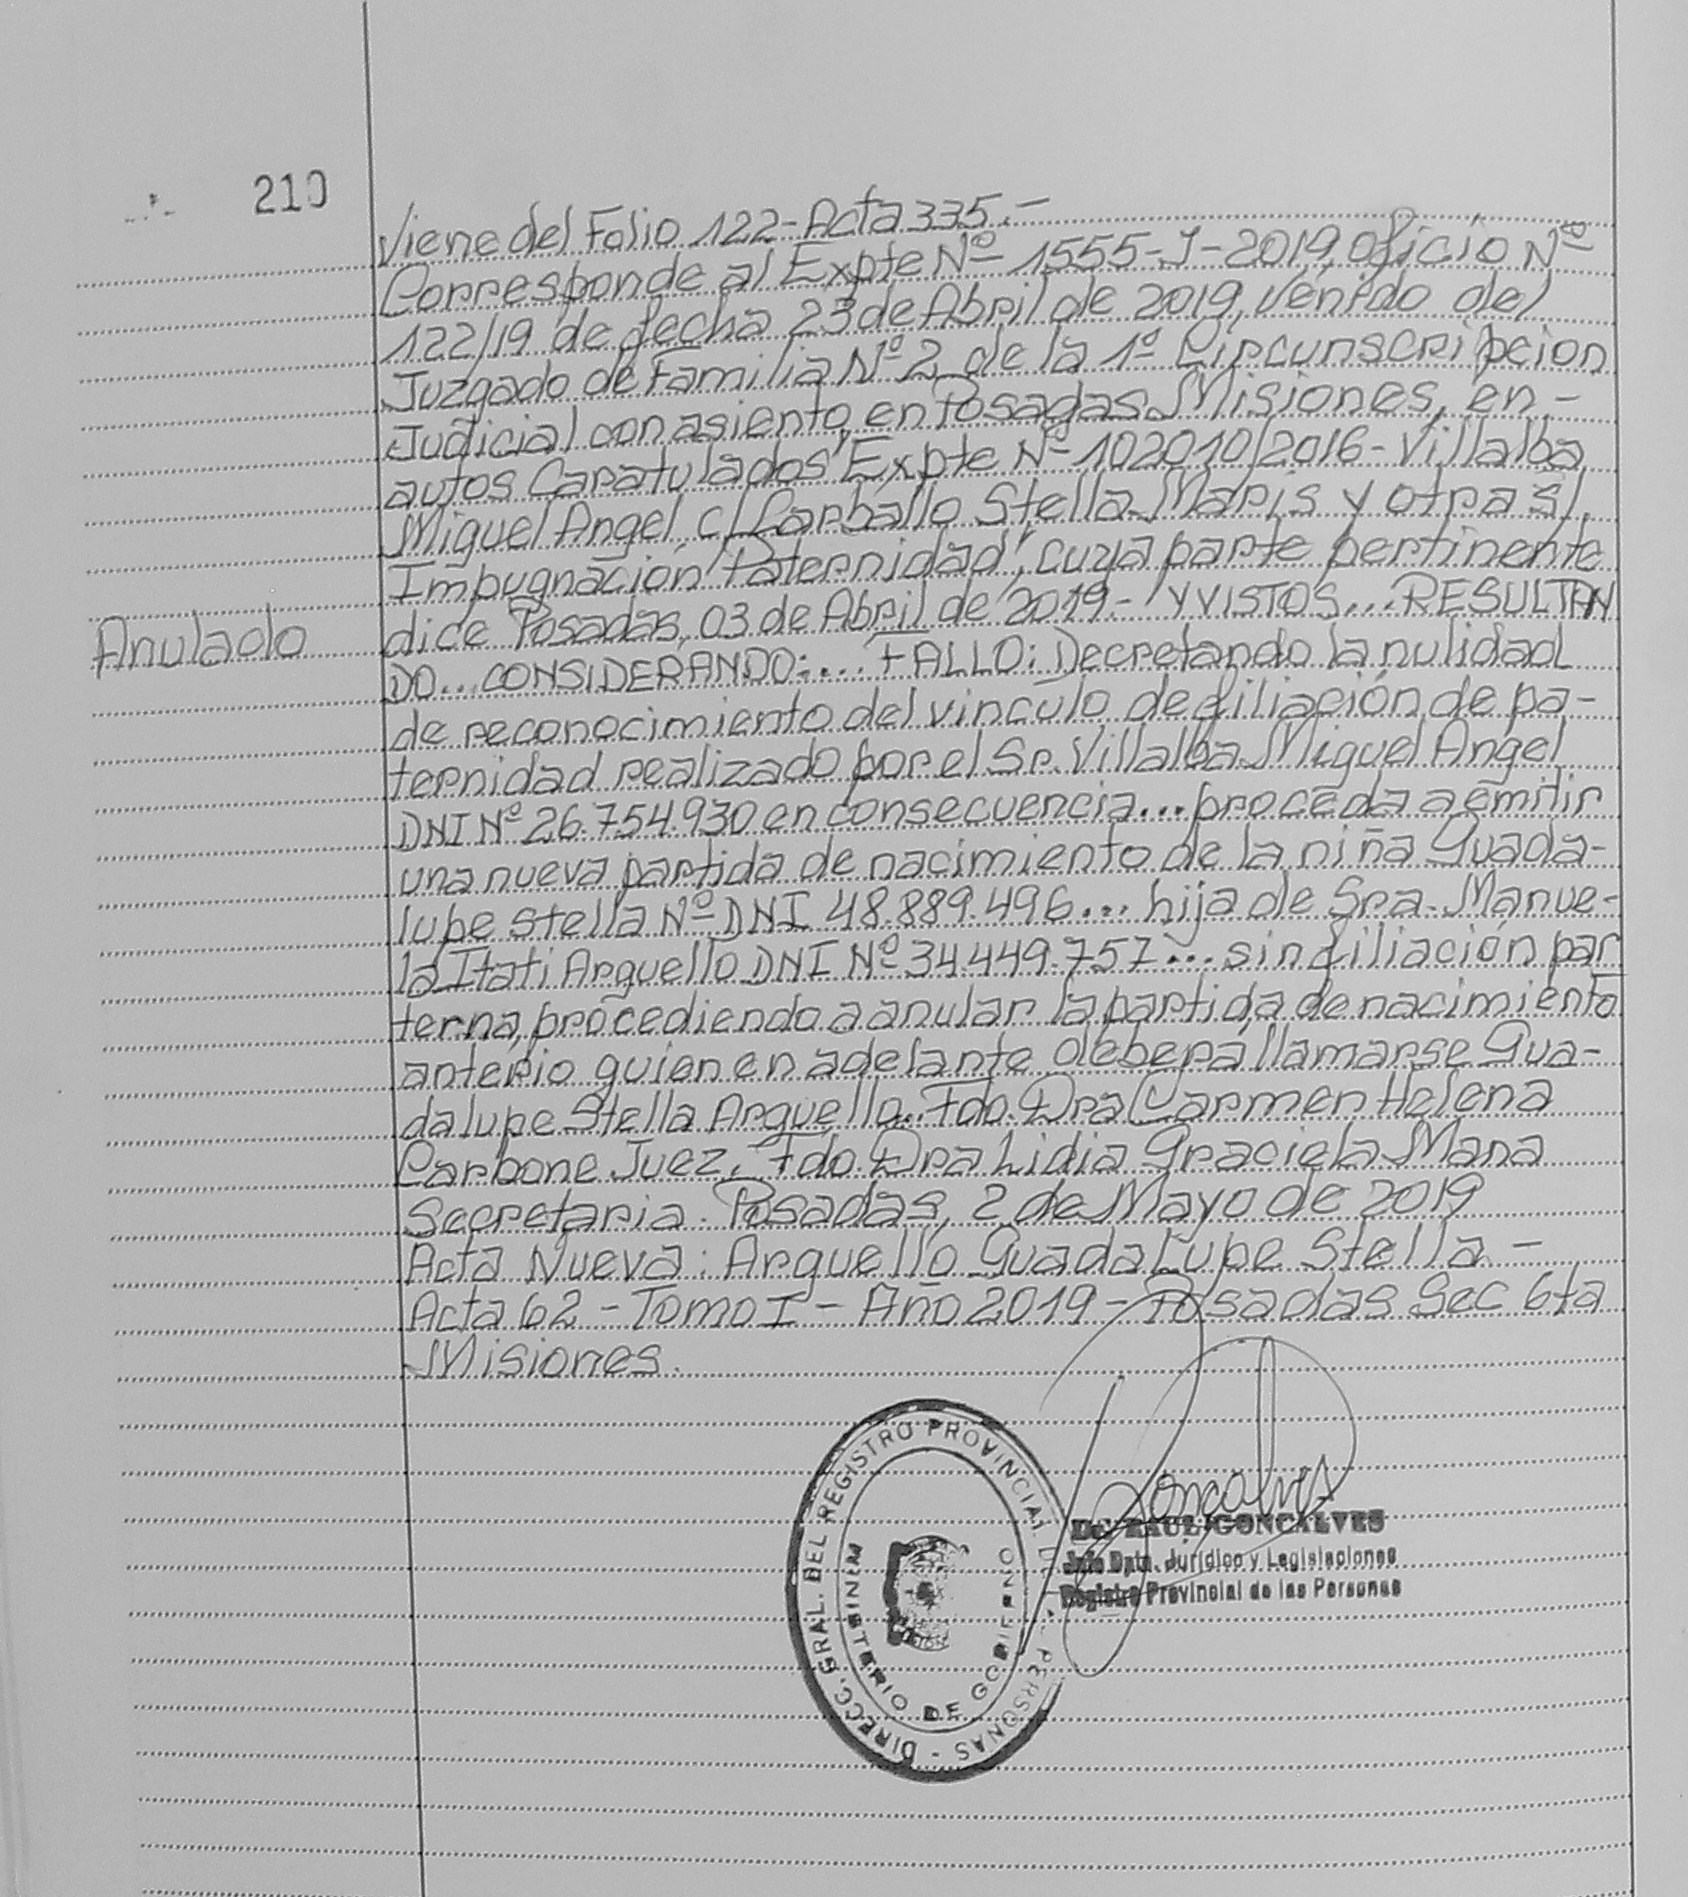 210
Viene del Folio 122-Acta 335.-
Corresponde al Expte Nº 1555-J-2019, oficio Nº
122/19 de fecha 23 de Abril de 2019, venido del
Juzgado de Familia Nº 2 de la 1º Circunscripcion
Judicial con asiento en Posadas Misiones, en-
autos Caratulados "Expte Nº 102010/2016-Villalba
Miguel Angel c/Carballo Stella Maris y otra s/
Impugnación Paternidad", cuya parte pertinente
dice Posadas, 03 de Abril de 2019.- Y VISTOS...RESULTAN
Anulado
DO...CONSIDERANDO:... FALLO: Decretando la nulidad
de reconocimiento del vinculo de filiación de pa-
ternidad realizado por el Sr. Villalba Miguel Angel
DNI Nº 26.754.930 en consecuencia... proceda a emitir
una nueva partida de nacimiento de la niña Guada-
lupe Stella Nº DNI 48.889.496... hija de Sra. Manue-
la Itati Arguello DNI Nº 34.449.757... sin filiación pa
terna, procediendo a anular la partida de nacimiento
anterio quien en adelante deberá llamarse Gua-
dalupe Stella Arguello.. Fdo. Dra Carmen Helena
Carbone Juez. Fdo. Dra Lidia Graciela Mana
Secretaria. Posadas, 2 de Mayo de 2019
Acta Nueva: Arguello Guadalupe Stella -
Acta 62 - Tomo I - Año 2019 - Posadas Sec 6ta
Misiones.
DIRECC. GRAL. DEL REGISTRO PROVINCIAL DE PERSONAS -
MINISTERIO DE GOBIERNO
Goncalves
Dr. RAUL GONCALVES
Jefe Dpto. Jurídico y Legislaciones
Registro Provincial de las Personas